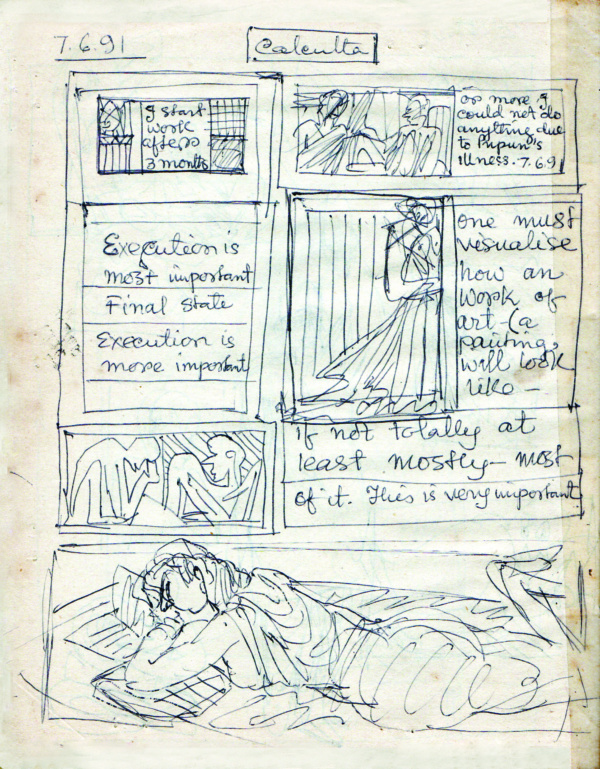 7.6.91
Calcutta
I start
work
after
3 months
or more I
could not do
anything due
to Pupun's
illness. 7.6.91
Execution is
most important
Final State
Execution is
more important
one must
visualise
how an
work of
art – (a
painting,
will look
like –
if not totally at
least mostly – most
of it. This is very important